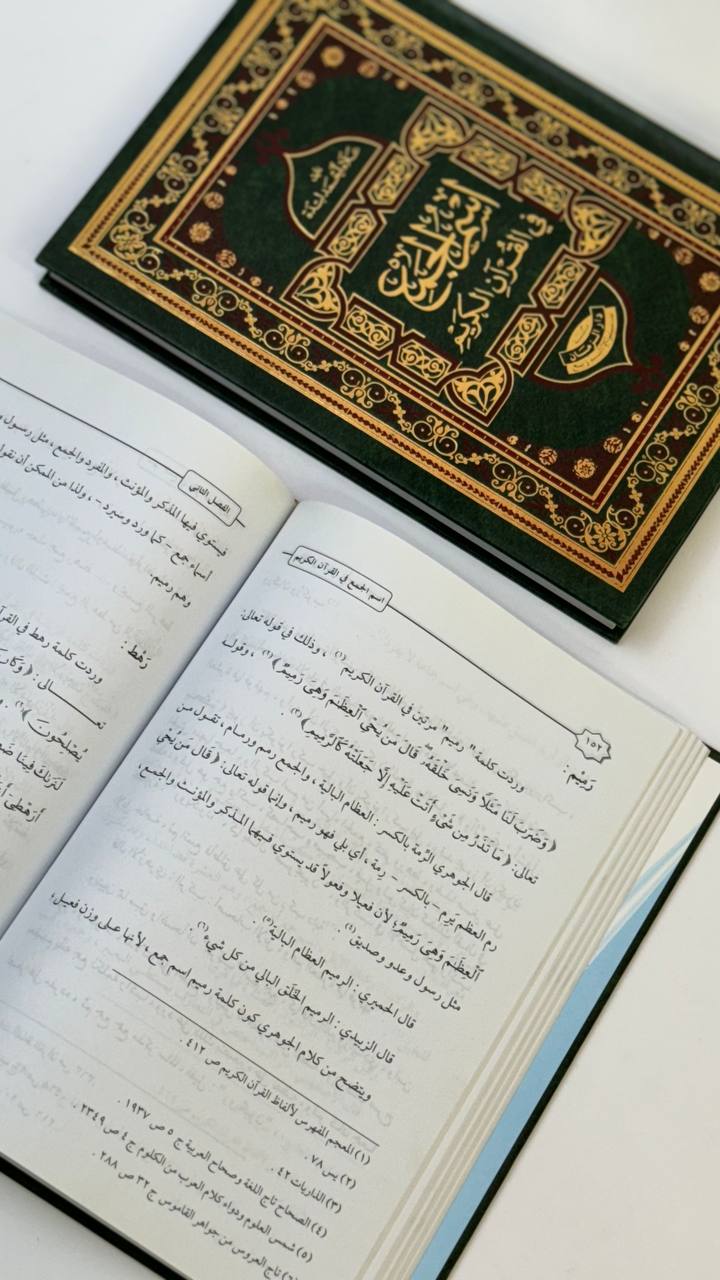 اسم الجمع
في القرآن الكريم
الفصل الثاني
فيستوي فيها المذكر والمؤنث، والمفرد والجمع، مثل رسول و
اسماء جمع – كما ورد وسيرد –، ولذا من الممكن أن نقول
وهم رميم.
رَهْط :
وردت كلمة رهط في القرآ
تعـــالى: ﴿وَكَانَ
يُصْلِحُونَ﴾
لَنَرَىٰكَ فِينَا ضَ
أَرَهْطِىٓ أَ
اسم الجمع في القرآن الكريم
١٥٢
رَمِيْم :
وردت كلمة "رميم" مرتين في القرآن الكريم(١)، وذلك في قوله تعالى:
﴿وَضَرَبَ لَنَا مَثَلًا وَنَسِىَ خَلْقَهُۥ قَالَ مَن يُحْىِ ٱلْعِظَٰمَ وَهِىَ رَمِيمٌ﴾(٢)، وقوله
تعالى: ﴿مَا تَذَرُ مِن شَىْءٍ أَتَتْ عَلَيْهِ إِلَّا جَعَلَتْهُ كَٱلرَّمِيمِ﴾(٣).
قال الجوهري الرِّمة بالكسر: العظام البالية، والجمع رمم ورمام، تقول من
رم العظم يَرِم – بالكسر – رمة، أي بلي فهو رميم، وانما قوله تعالى: ﴿قَالَ مَن يُحْىِ
ٱلْعِظَٰمَ وَهِىَ رَمِيمٌ﴾؛ لأن فعيلا وفعولاً قد يستوي فيهما المذكر والمؤنث والجمع،
مثل رسول وعدو وصديق(٤).
قال الحميري: الرميم العظام البالية(٥).
قال الزبيدي: الرميم الخَلَق البالي من كل شيء(٦).
ويتضح من كلام الجوهري كون كلمة رميم اسم جمع، لأنها على وزن فعيل،
(١) المعجم المفهرس لألفاظ القرآن الكريم ص ٤١٢.
(٢) يس ٧٨.
(٣) الذاريات ٤٢.
(٤) الصحاح تاج اللغة وصحاح العربية ج ٥ ص ١٩٣٧.
(٥) شمس العلوم ودواء كلام العرب من الكلوم ج ٤ ص ٢٣٤٩.
(٦) تاج العروس من جواهر القاموس ج ٣٢ ص ٢٨٨.